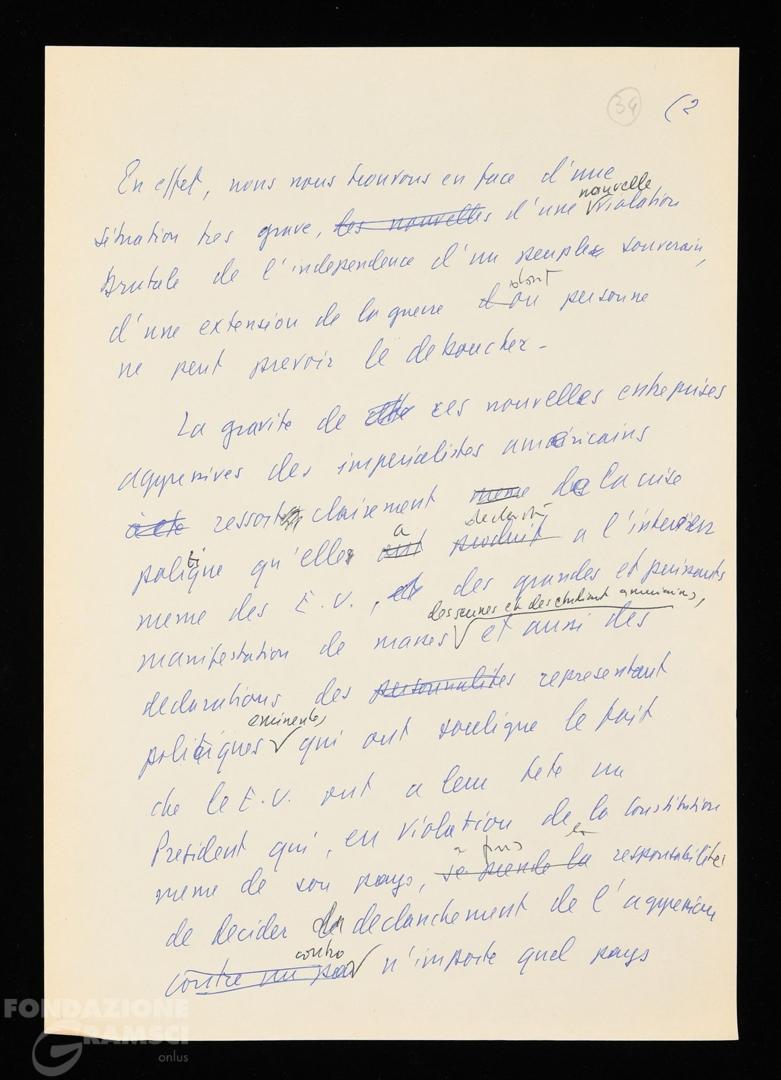 34 (2
En effet, nous nous trouvons en face d'une
nouvelle
situation tres grave, les nouvelles d'une violation
brutale de l'independence d'un peuple souverain,
dont
d'une extension de la guerre d'ou personne
ne peut prevoir le deboucher -
La gravite de ces nouvelles entreprises
aggressives des imperialistes americains
a ete ressort clairement meme de la crise
a declanché
politique qu'elle ont produit a l'interieur
meme des E.U., et des grandes et puissants
des jeunes et des etudiant americains,
manifestation de masses et aussi des
declarations des personnalites representant
eminentes
politiques qui ont soulique le fait
che le E.U. ont a leur tete un
President qui, en violation de la Constitution
a pris la
meme de son pays, se prende la responsabilite
de decider du declanchement de l'aggression
contro
contre un pa n'importe quel pays
FONDAZIONE
GRAMSCI
onlus